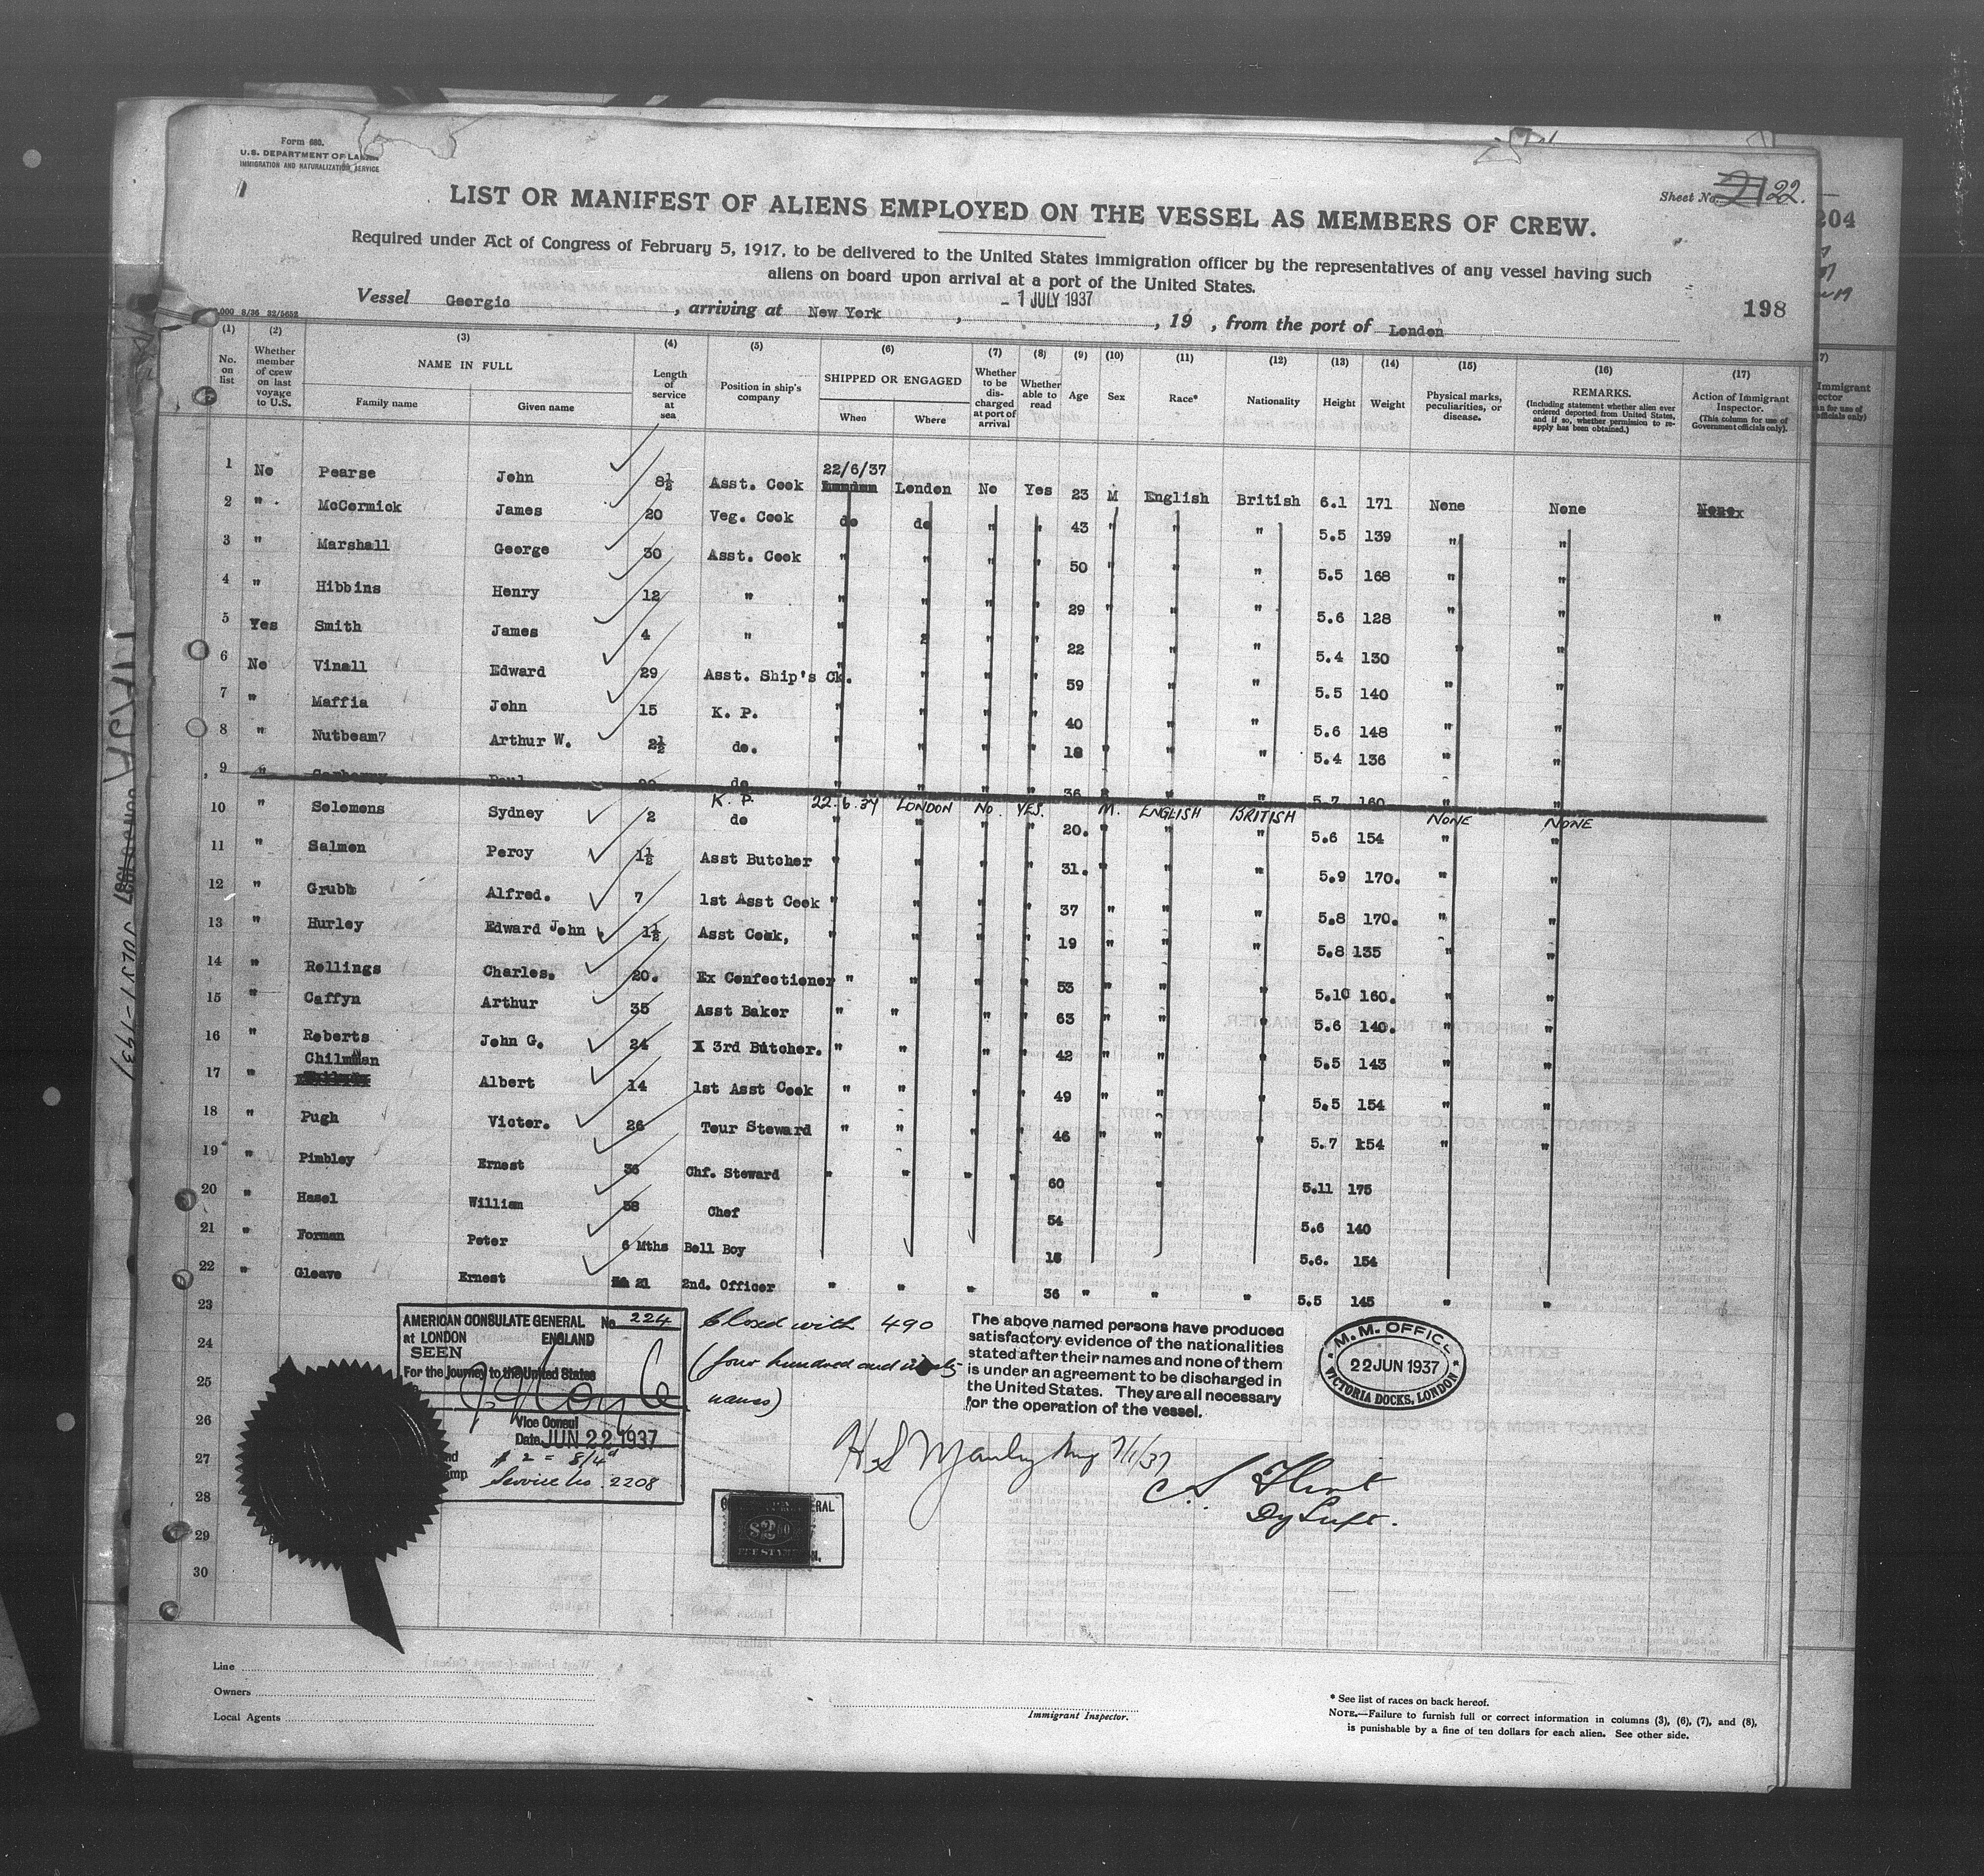 Form 680.
U.S. DEPARTMENT OF LABOR
IMMIGRATION AND NATURALIZATION SERVICE
Sheet No. 21 22.
LIST OR MANIFEST OF ALIENS EMPLOYED ON THE VESSEL AS MEMBERS OF CREW.
Required under Act of Congress of February 5, 1917, to be delivered to the United States immigration officer by the representatives of any vessel having such
aliens on board upon arrival at a port of the United States.
Vessel Georgic, arriving at New York, - 1 JULY 1937, 19 , from the port of London
198
204
(1) No. on list
(2) Whether member of crew on last voyage to U.S.
(3) NAME IN FULL Family name Given name
(4) Length of service at sea
(5) Position in ship's company
(6) SHIPPED OR ENGAGED When Where
(7) Whether to be discharged at port of arrival
(8) Whether able to read
(9) Age
(10) Sex
(11) Race*
(12) Nationality
(13) Height
(14) Weight
(15) Physical marks, peculiarities, or disease.
(16) REMARKS. (Including statement whether alien ever ordered deported from United States, and if so, whether permission to re-apply has been obtained.)
(17) Action of Immigrant Inspector. (This column for use of Government officials only).
1 No Pearse John 8½ Asst. Cook 22/6/37 London No Yes 23 M English British 6.1 171 None None None
2 " McCormick James 20 Veg. Cook do do " " 43 " " " 5.5 139 " "
3 " Marshall George 30 Asst. Cook " " " " 50 " " " 5.5 168 " "
4 " Hibbins Henry 12 " " " " " 29 " " " 5.6 128 " " "
5 Yes Smith James 4 " " " " " 22 " " 5.4 130 " "
6 No Vinall Edward 29 Asst. Ship's Ck. " " " 59 " " 5.5 140 " "
7 " Maffia John 15 K. P. " " " " 40 " " 5.6 148 " "
8 " Nutbeam Arthur W. 2½ do. " " " " 18 " " " 5.4 136 " "
9 " Paul do " " " " 36 " " 5.7 160 "
K. P. 22.6.37 LONDON NO. YES. M. ENGLISH BRITISH NONE NONE
10 " Solomons Sydney 2 do " " " " 20. " " " 5.6 154 " "
11 " Salmon Percy 1½ Asst Butcher " " " " 31. " " " 5.9 170. " "
12 " Grubb Alfred. 7 1st Asst Cook " " " " 37 " " " 5.8 170. " "
13 " Hurley Edward John 1½ Asst Cook, " " " " 19 " " " 5.8 135 " "
14 " Rollings Charles. 20. Ex Confectioner " " " " 53 " " " 5.10 160. " "
15 " Caffyn Arthur 35 Asst Baker " " " " 63 " " " 5.6 140. " "
16 " Roberts John G. 24 X 3rd Butcher. " " " " 42 " " " 5.5 143 " "
17 " Chilman Albert 14 1st Asst Cook " " " " 49 " " " 5.5 154 " "
18 " Pugh Victor. 26 Tour Steward " " " " 46 " " " 5.7 154 " "
19 " Pimbley Ernest 36 Chf. Steward " " " " 60 " 5.11 175
20 " Hasel William 38 Chef 54 5.6 140
21 " Forman Peter 6 Mths Bell Boy 16 5.6. 154
22 " Gleave Ernest 21 2nd. Officer " " " " 36 " " " 5.5 145 " "
23
24
25
26
27
28
29
30
AMERICAN CONSULATE GENERAL No 224
at LONDON ENGLAND
SEEN
For the journey to the United States
Vice Consul
Date JUN 22 1937
$ 2 = 8/4d
Service No. 2208
Closed with 490
(four hundred and ninety
names)
The above named persons have produced
satisfactory evidence of the nationalities
stated after their names and none of them
is under an agreement to be discharged in
the United States. They are all necessary
for the operation of the vessel.
M. M. OFFICE
22 JUN 1937
VICTORIA DOCKS, LONDON
7/1/37
C S Flint
Dy Supt.
$2.00
FEE STAMP
Line
Owners
Local Agents
Immigrant Inspector.
* See list of races on back hereof.
NOTE.—Failure to furnish full or correct information in columns (3), (6), (7), and (8),
is punishable by a fine of ten dollars for each alien. See other side.